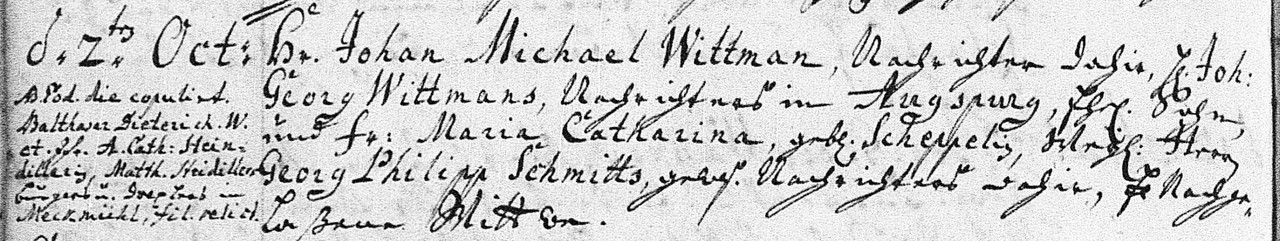 d. 2ten Oct: Hr. Johan Michael Wittman, Nachrichter dahir, H. Joh:
Georg Wittmans, Nachrichters in Augspurg, Ehel. Sohn,
und Fr: Maria Catharina, geb. Scheppelin, Weyl: Herrn
Georg Philipp Schmitts, gewes. Nachrichters dahir, Nachge-
laßene Wittwe.
Eod. die copulirt.
Balthasar Dieterich. W.
et. Jfr. A. Cath: Stein-
dillerin, Matth. Steidillers
burgers u. in
Meckmühl, fil. relict.